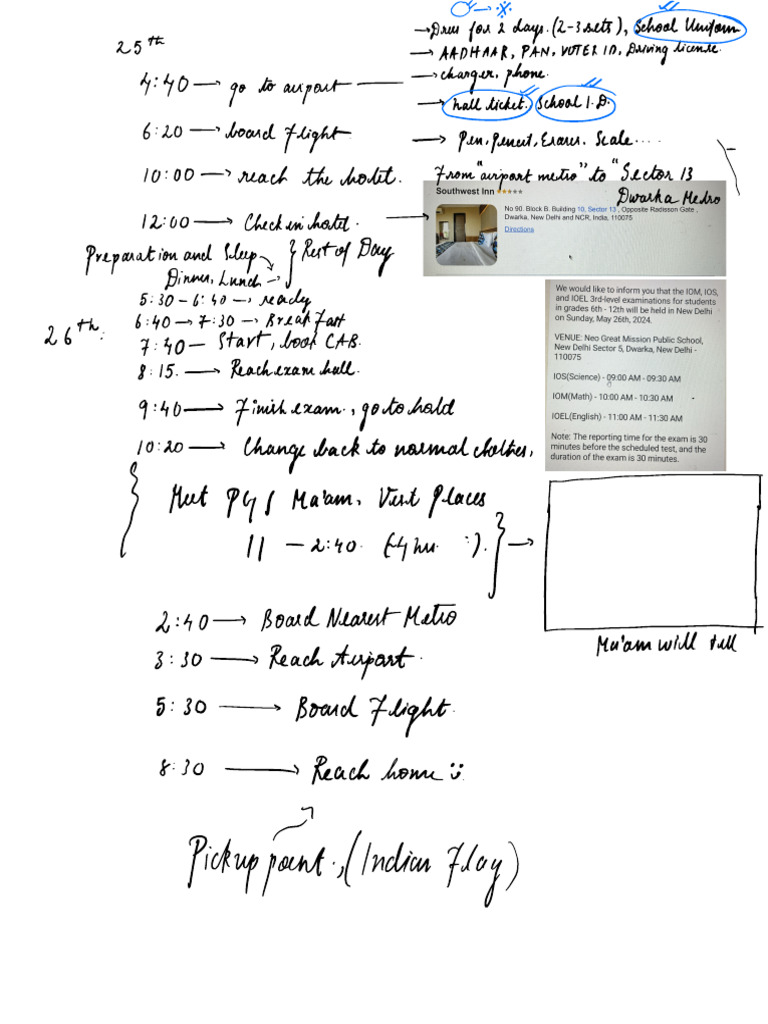 →Dress for 2 days. (2-3 sets), School Uniform
25th
→ AADHAAR, PAN, VOTER ID, Driving license.
4:40 → go to airport → charger, phone.
→ hall ticket. School I.D.
6:20 → board flight → Pen, Pencil, Eraser. Scale....
10:00 → reach the hotel. From "airport metro" to "Sector 13
Dwarka Metro
Southwest Inn ★★★★★
No 90. Block B. Building 10, Sector 13 , Opposite Radisson Gate ,
Dwarka, New Delhi and NCR, India, 110075
Directions
12:00 → Check in hotel. →
Preparation and Sleep } Rest of Day
Dinner, Lunch →
26th:
5:30 - 6:40 → ready
6:40 → 7:30 → Breakfast
7:40 — Start, book CAB.
8:15. → Reach exam hall.
9:40 → Finish exam., go to hold
10:20 → Change back to normal clothes,
We would like to inform you that the IOM, IOS,
and IOEL 3rd-level examinations for students
in grades 6th - 12th will be held in New Delhi
on Sunday, May 26th, 2024.
VENUE: Neo Great Mission Public School,
New Delhi Sector 5, Dwarka, New Delhi -
110075
IOS(Science) - 09:00 AM - 09:30 AM
IOM(Math) - 10:00 AM - 10:30 AM
IOEL(English) - 11:00 AM - 11:30 AM
Note: The reporting time for the exam is 30
minutes before the scheduled test, and the
duration of the exam is 30 minutes.
Meet Ma'am, Visit Places
11 — 2:40. (~4 hr. :). →
Ma'am will tell
2:40 → Board Nearest Metro
3:30 → Reach Airport.
5:30 → Board Flight.
8:30 → Reach home :)
Pickup point., (Indian Flag)